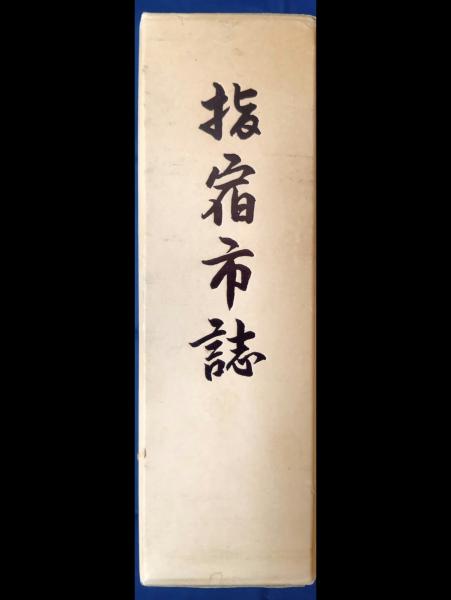 指宿市誌